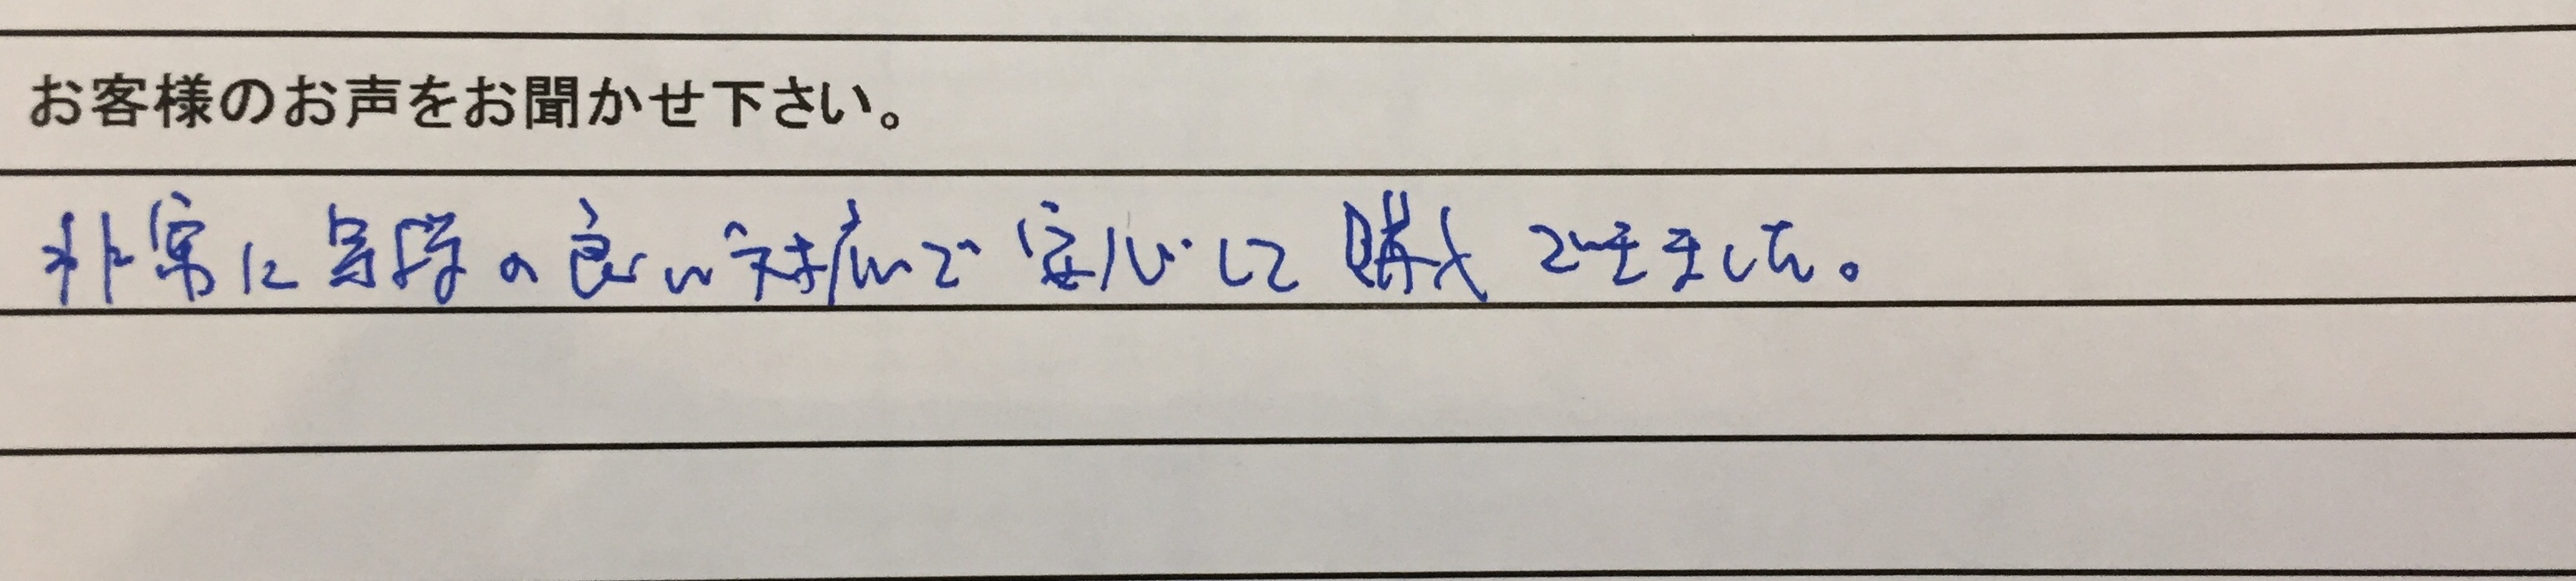 お客様のお声をお聞かせ下さい。
非常に印象の良い対応で安心して購入できました。